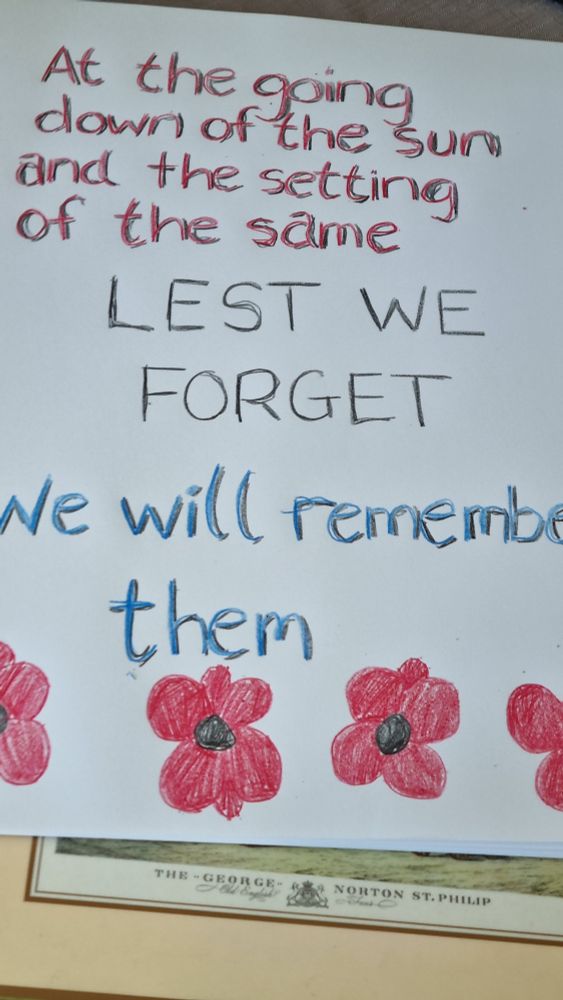 At the going
down of the sun
and the setting
of the same
LEST WE
FORGET
We will remembe
them
THE "GEORGE" NORTON ST. PHILIP
Old English Inns